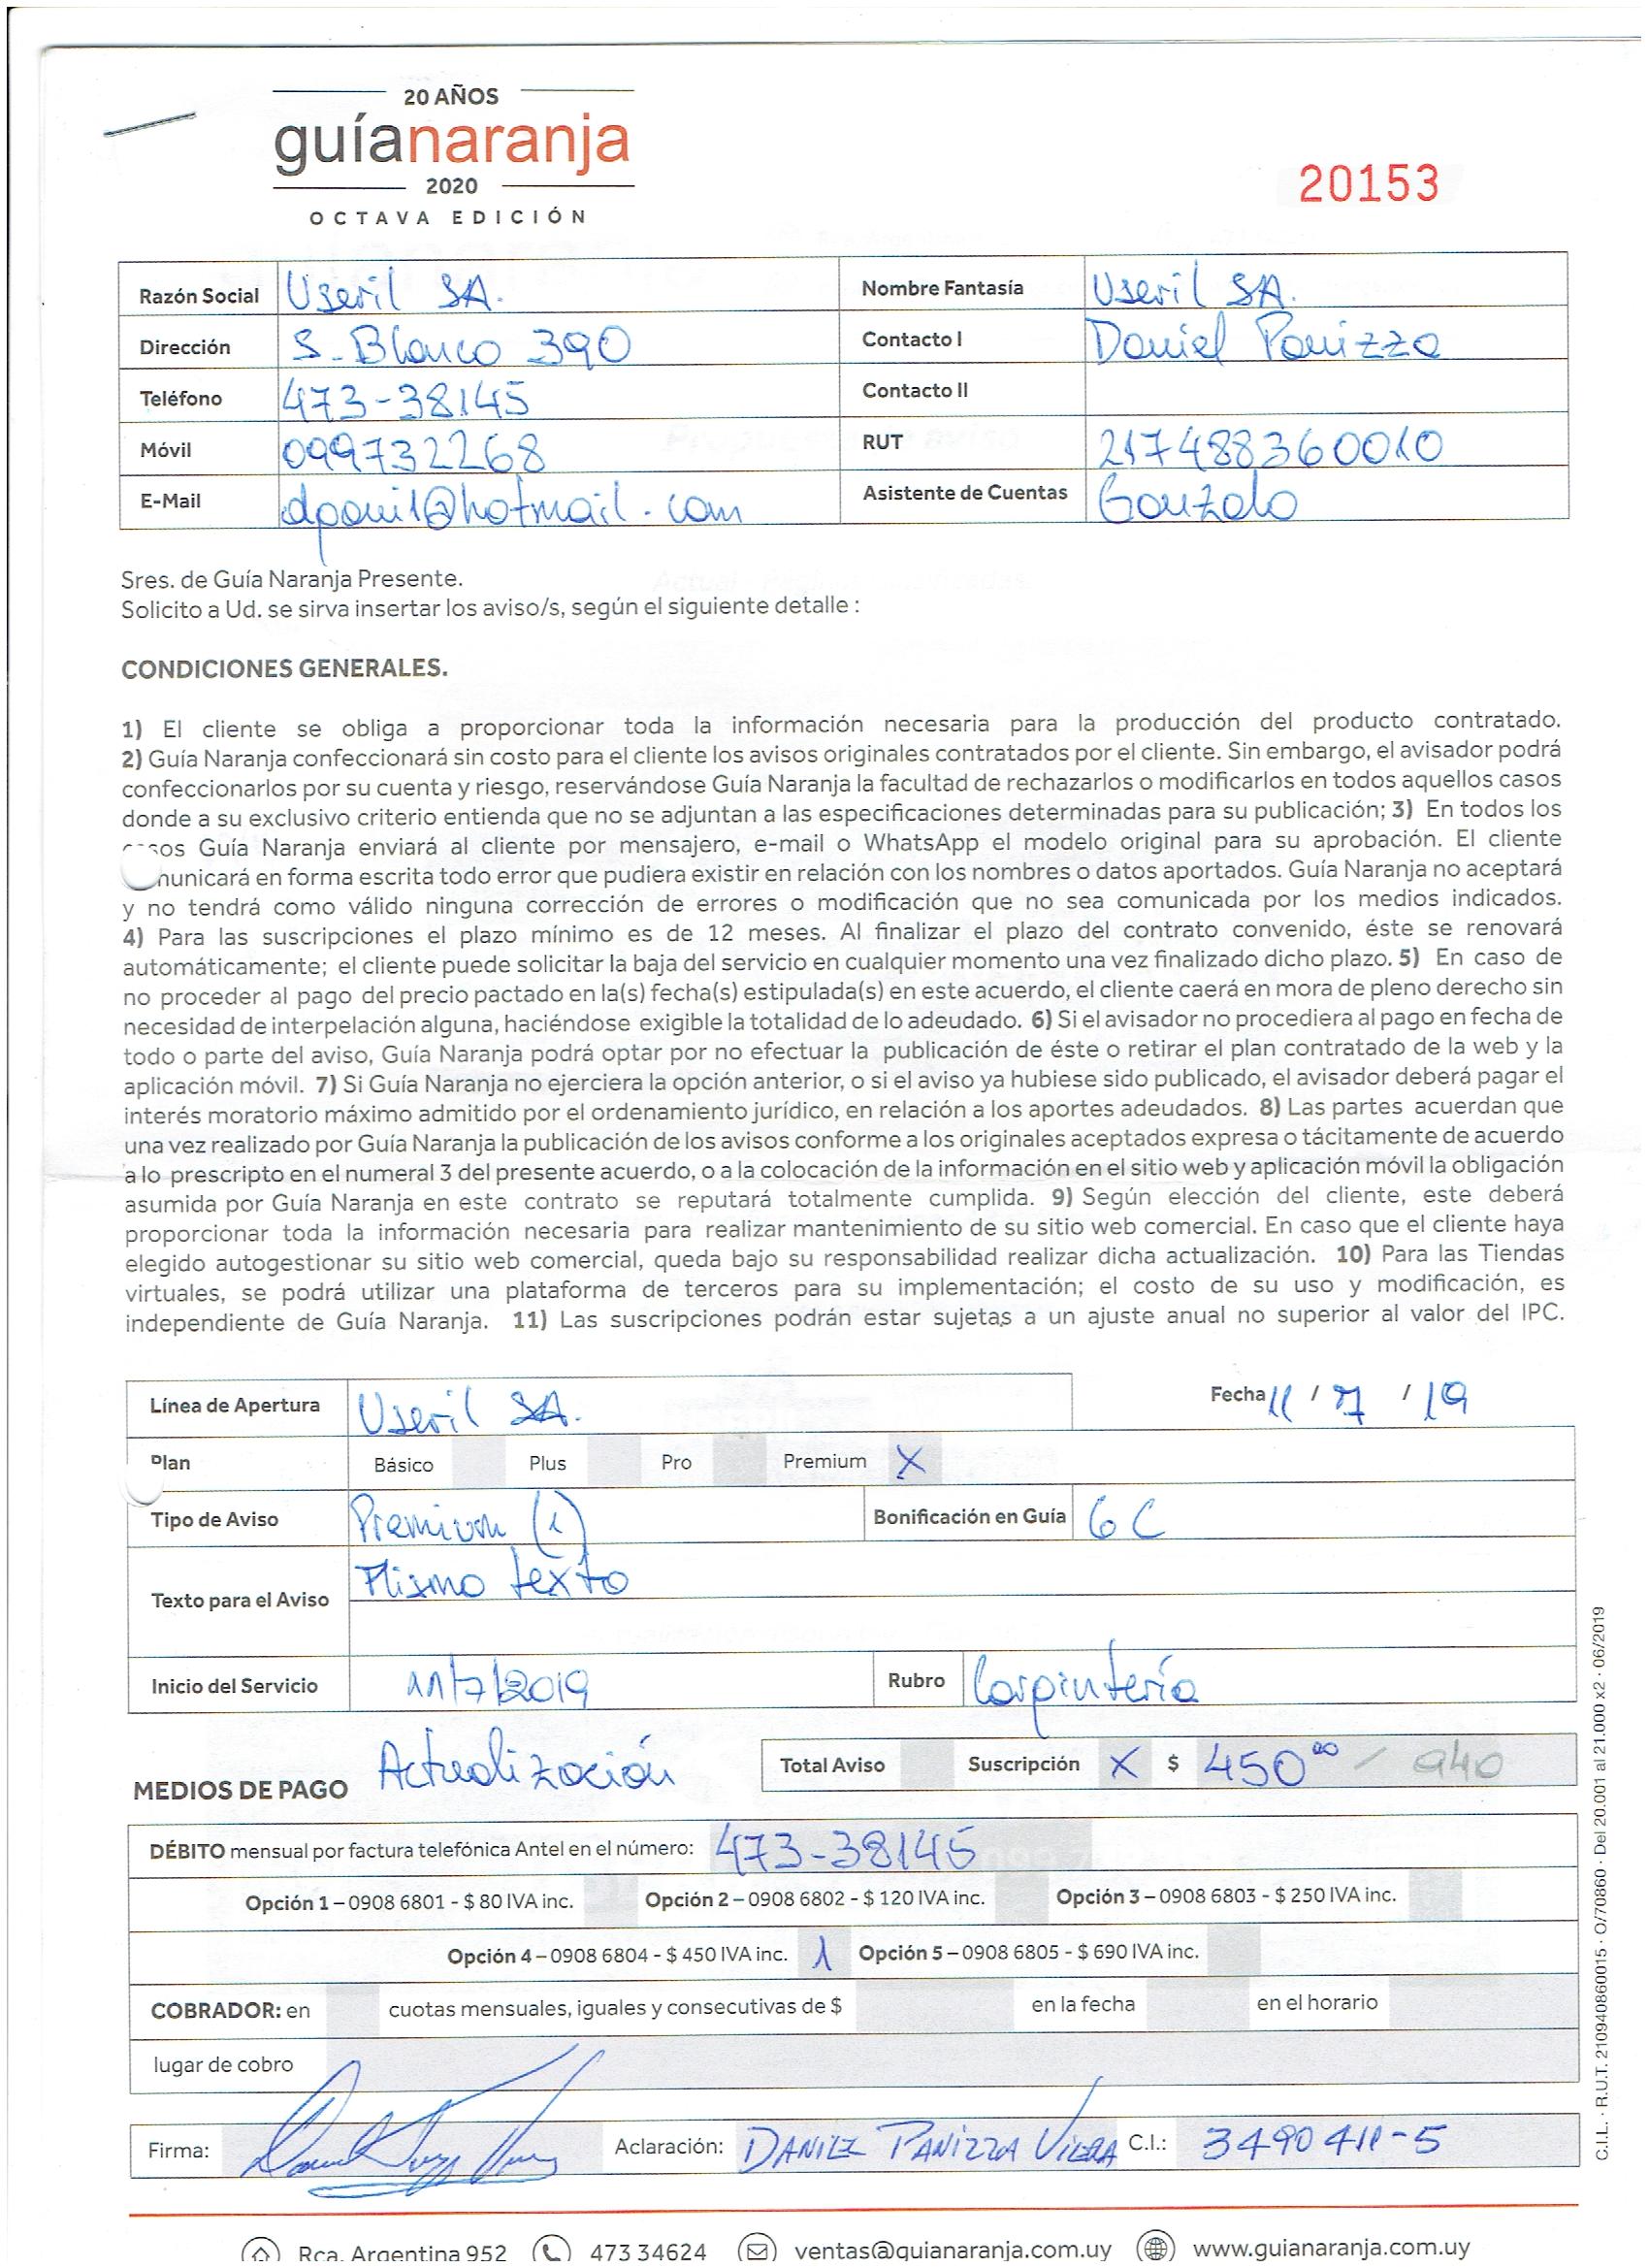 20 AÑOS
guíanaranja
2020
OCTAVA EDICIÓN
20153
Razón Social Useril SA. Nombre Fantasía Useril SA.
Dirección S. Blanco 390 Contacto I Daniel Panizza
Teléfono 473-38145 Contacto II
Móvil 099732268 RUT 217488360010
E-Mail dpani1@hotmail.com Asistente de Cuentas Gonzalo
Sres. de Guía Naranja Presente.
Solicito a Ud. se sirva insertar los aviso/s, según el siguiente detalle :
CONDICIONES GENERALES.
1) El cliente se obliga a proporcionar toda la información necesaria para la producción del producto contratado.
2) Guía Naranja confeccionará sin costo para el cliente los avisos originales contratados por el cliente. Sin embargo, el avisador podrá
confeccionarlos por su cuenta y riesgo, reservándose Guía Naranja la facultad de rechazarlos o modificarlos en todos aquellos casos
donde a su exclusivo criterio entienda que no se adjuntan a las especificaciones determinadas para su publicación; 3) En todos los
sos Guía Naranja enviará al cliente por mensajero, e-mail o WhatsApp el modelo original para su aprobación. El cliente
nunicará en forma escrita todo error que pudiera existir en relación con los nombres o datos aportados. Guía Naranja no aceptará
y no tendrá como válido ninguna corrección de errores o modificación que no sea comunicada por los medios indicados.
4) Para las suscripciones el plazo mínimo es de 12 meses. Al finalizar el plazo del contrato convenido, éste se renovará
automáticamente; el cliente puede solicitar la baja del servicio en cualquier momento una vez finalizado dicho plazo. 5) En caso de
no proceder al pago del precio pactado en la(s) fecha(s) estipulada(s) en este acuerdo, el cliente caerá en mora de pleno derecho sin
necesidad de interpelación alguna, haciéndose exigible la totalidad de lo adeudado. 6) Si el avisador no procediera al pago en fecha de
todo o parte del aviso, Guía Naranja podrá optar por no efectuar la publicación de éste o retirar el plan contratado de la web y la
aplicación móvil. 7) Si Guía Naranja no ejerciera la opción anterior, o si el aviso ya hubiese sido publicado, el avisador deberá pagar el
interés moratorio máximo admitido por el ordenamiento jurídico, en relación a los aportes adeudados. 8) Las partes acuerdan que
una vez realizado por Guía Naranja la publicación de los avisos conforme a los originales aceptados expresa o tácitamente de acuerdo
a lo prescripto en el numeral 3 del presente acuerdo, o a la colocación de la información en el sitio web y aplicación móvil la obligación
asumida por Guía Naranja en este contrato se reputará totalmente cumplida. 9) Según elección del cliente, este deberá
proporcionar toda la información necesaria para realizar mantenimiento de su sitio web comercial. En caso que el cliente haya
elegido autogestionar su sitio web comercial, queda bajo su responsabilidad realizar dicha actualización. 10) Para las Tiendas
virtuales, se podrá utilizar una plataforma de terceros para su implementación; el costo de su uso y modificación, es
independiente de Guía Naranja. 11) Las suscripciones podrán estar sujetas a un ajuste anual no superior al valor del IPC.
Línea de Apertura Useril SA. Fecha 11 / 7 / 19
Plan Básico Plus Pro Premium X
Tipo de Aviso Premium (1) Bonificación en Guía 6C
Texto para el Aviso Mismo texto
Inicio del Servicio 11/7/2019 Rubro Carpintería
MEDIOS DE PAGO Actualización Total Aviso Suscripción X $ 450 00 / 940
DÉBITO mensual por factura telefónica Antel en el número: 473-38145
Opción 1 – 0908 6801 - $ 80 IVA inc. Opción 2 – 0908 6802 - $ 120 IVA inc. Opción 3 – 0908 6803 - $ 250 IVA inc.
Opción 4 – 0908 6804 - $ 450 IVA inc. 1 Opción 5 – 0908 6805 - $ 690 IVA inc.
COBRADOR: en cuotas mensuales, iguales y consecutivas de $ en la fecha en el horario
lugar de cobro
Firma: Aclaración: DANIEL PANIZZA VILERA C.I.: 3490411-5
Rca. Argentina 952 473 34624 ventas@guianaranja.com.uy www.guianaranja.com.uy
C.I.L. · R.U.T. 210940860015 · O/70860 · Del 20.001 al 21.000 x2 · 06/2019